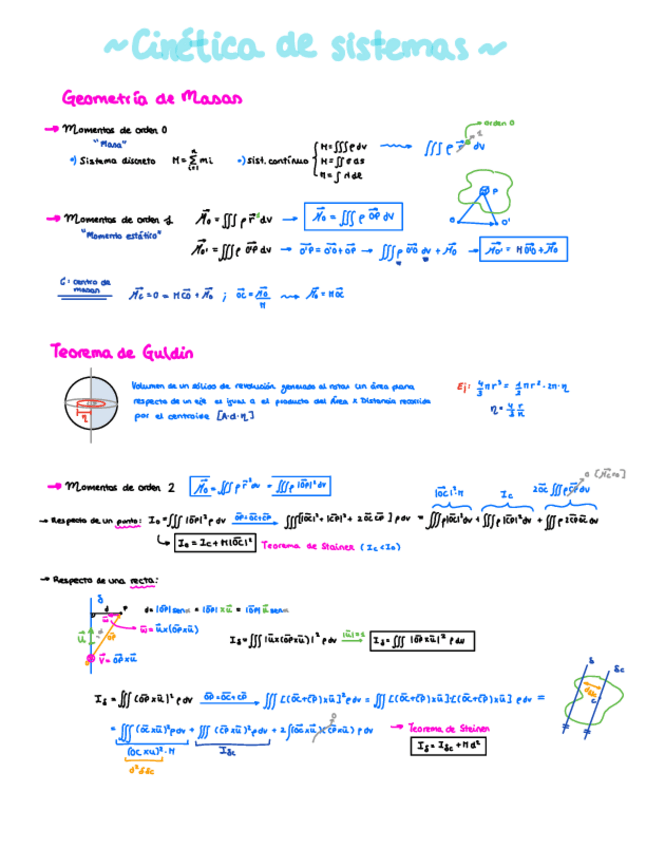 ~Cinética de sistemas~
Geometría de Masas
→ Momentos de orden 0
"Masa"
•) Sistema discreto M = Σ mi •) sist. continuo { M = ∭ρdv
M = ∬σds
M = ∫λdl
∭ρ r⃗ dv
orden 0
→ Momentos de orden 1
"Momento estático"
M⃗o = ∭ρ r⃗ dv → M⃗o = ∭ρ OP⃗ dv
M⃗o' = ∭ρ O'P⃗ dv → O'P⃗ = O'O⃗ + OP⃗ → ∭ρ O'O⃗ dv + M⃗o → M⃗o' = M O'O⃗ + M⃗o
O O' P
C: centro de
masas
M⃗c = 0 = M CO⃗ + M⃗o ; OC⃗ = M⃗o/M ⇝ M⃗o = M OC⃗
Teorema de Guldin
Volumen de un sólido de revolución generado al rotar un área plana
respecto de un eje es igual a el producto del Área x Distancia recorrida
por el centroide [A·d·η]
η
Ej: 4/3 πr³ = 1/2 πr² · 2π·η
η = 4/3 r/π
→ Momentos de orden 2 M⃗o = ∭ρ r⃗² dv = ∭ρ |OP⃗|² dv
|OC⃗|²·M Ic 2OC⃗ ∭ρ CP⃗ dv 0 [M⃗c=0]
→ Respecto de un punto: Io = ∭|OP⃗|²ρ dv OP⃗=OC⃗+CP⃗ → ∭[|OC⃗|² + |CP⃗|² + 2 OC⃗ CP⃗] ρ dv = ∭ρ|OC⃗|²dv + ∭ρ|CP⃗|²dv + ∭ρ 2CP⃗ OC⃗ dv
Io = Ic + M|OC⃗|² Teorema de Steiner (Ic<Io)
→ Respecto de una recta:
δ d P u⃗ w⃗ OP⃗
d = |OP⃗| senα = |OP⃗| x u⃗ = |OP⃗| u⃗ senα
w⃗ = u⃗x(OP⃗xu⃗)
v⃗ = OP⃗xu⃗
Iδ = ∭|u⃗x(OP⃗xu⃗)|² ρ dv |u⃗|=1 → Iδ = ∭|OP⃗xu⃗|² ρ dv
Iδ = ∭(OP⃗xu⃗)² ρ dv OP⃗=OC⃗+CP⃗ → ∭[(OC⃗+CP⃗)xu⃗]²ρ dv = ∭[(OC⃗+CP⃗)xu⃗][(OC⃗+CP⃗)xu⃗] ρ dv =
= ∭(OC⃗xu⃗)²ρdv + ∭(CP⃗xu⃗)²ρdv + 2∫(OC⃗xu⃗)(CP⃗xu⃗) ρ dv
(OC⃗xu⃗)²·M Iδc
d²δδc
→ Teorema de Steiner
Iδ = Iδc + Md²
δ δc
dδδc
C